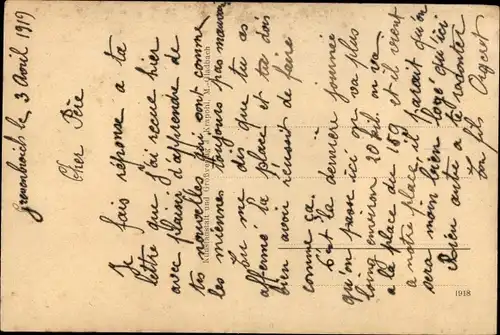 Grevenbroich le, 3 Avril 1919
Cher Père
Je fais réponse a ta
lettre que j'ai recue hier
avec plaisir d'apprendre de
tes nouvelles qui sont comme
les miennes toujours pas mauvais
Tu me dis que tu as
affermé la place et tu dois
bien avoir réussit de faire
comme ça.
C'est la dernière journée
qu'on passe ici on va plus
loing environ 20 kil. on va
a la place du 159 et il vient
a notre place, il parait qu'on
sera moin bien logé qu'ici
Rien autre a te raconter
Ton fils
Kunstanstalt und Großverlag Krapohl, M.-Gladbach
1918